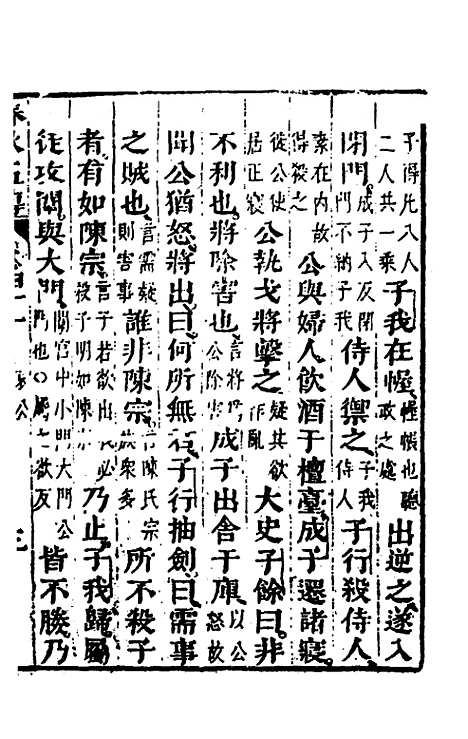 子得凡八人二人共一乘子我在幄幄帳也聽政之處出逆之遂入
閉門成子入反閉門不納子我侍人禦之子我侍人子行殺侍人
素在内故得殺之公與婦人飲酒于檀臺成子遷諸寢
徙公使居正寢公執戈將擊之疑其欲作亂大史子餘曰非
不利也將除害也言將爲公除害成子出舍于庫以公怒故
聞公猶怒將出曰何所無君子行抽劍曰需事
之賊也言需疑則害事誰非陳宗言陳氏宗族衆多所不殺子
者有如陳宗言子若欲出我必殺子明如陳宗乃止子我歸屬
徒攻闈與大門闈宫中小門大門公門也皆不勝乃